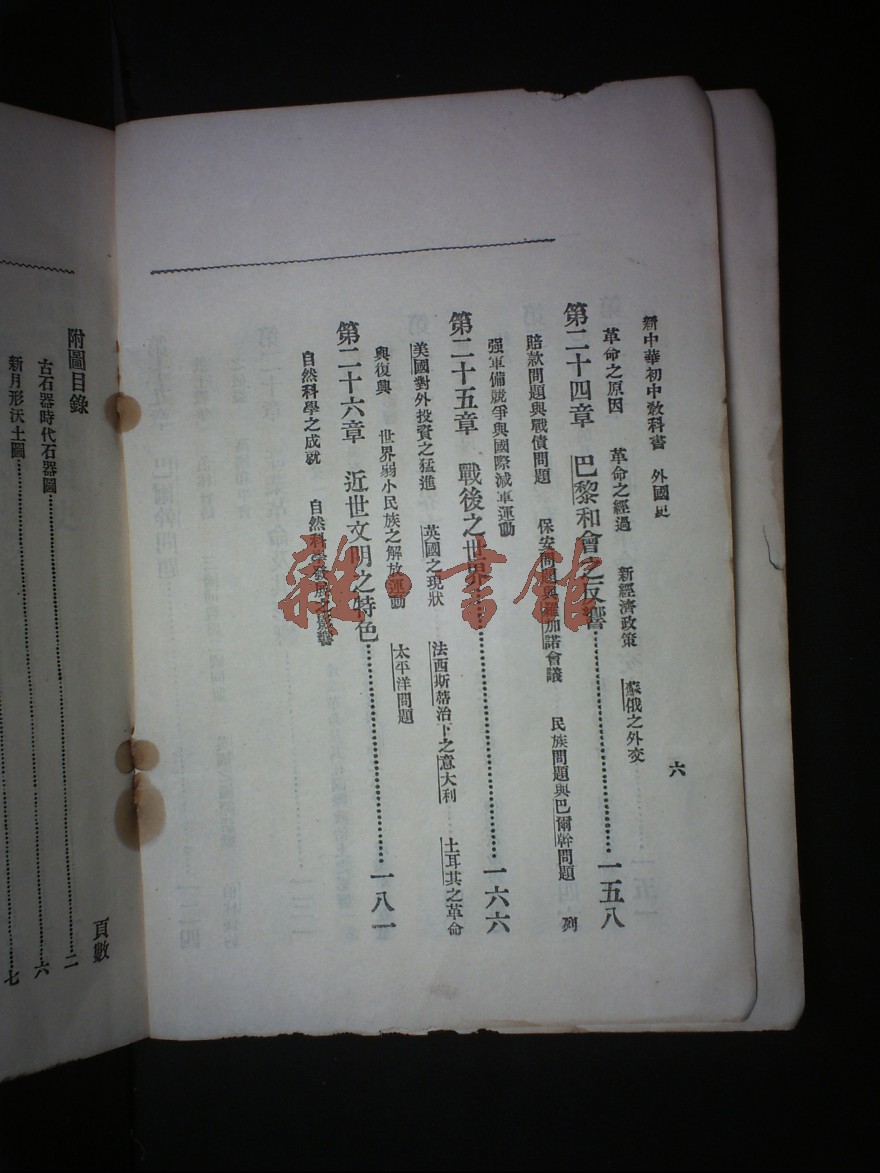 新中華初中敎科書　外國史
六
革命之原因　革命之經過　新經濟政策　蘇俄之外交
第二十四章　巴黎和會之反響…………一五八
賠款問題與戰債問題　保安問題與羅加諾會議　民族問題與巴爾幹問題　列
强軍備競爭與國際減軍運動
第二十五章　戰後之世界…………一六六
美國對外投資之猛進　英國之現狀　法西斯蒂治下之意大利　土耳其之革命
與復興　世界弱小民族之解放運動　太平洋問題
第二十六章　近世文明之特色…………一八一
自然科學之成就　自然科學發展之影響
附圖目錄
頁數
古石器時代石器圖…………二
新月形沃土圖…………六
七
雜·書館